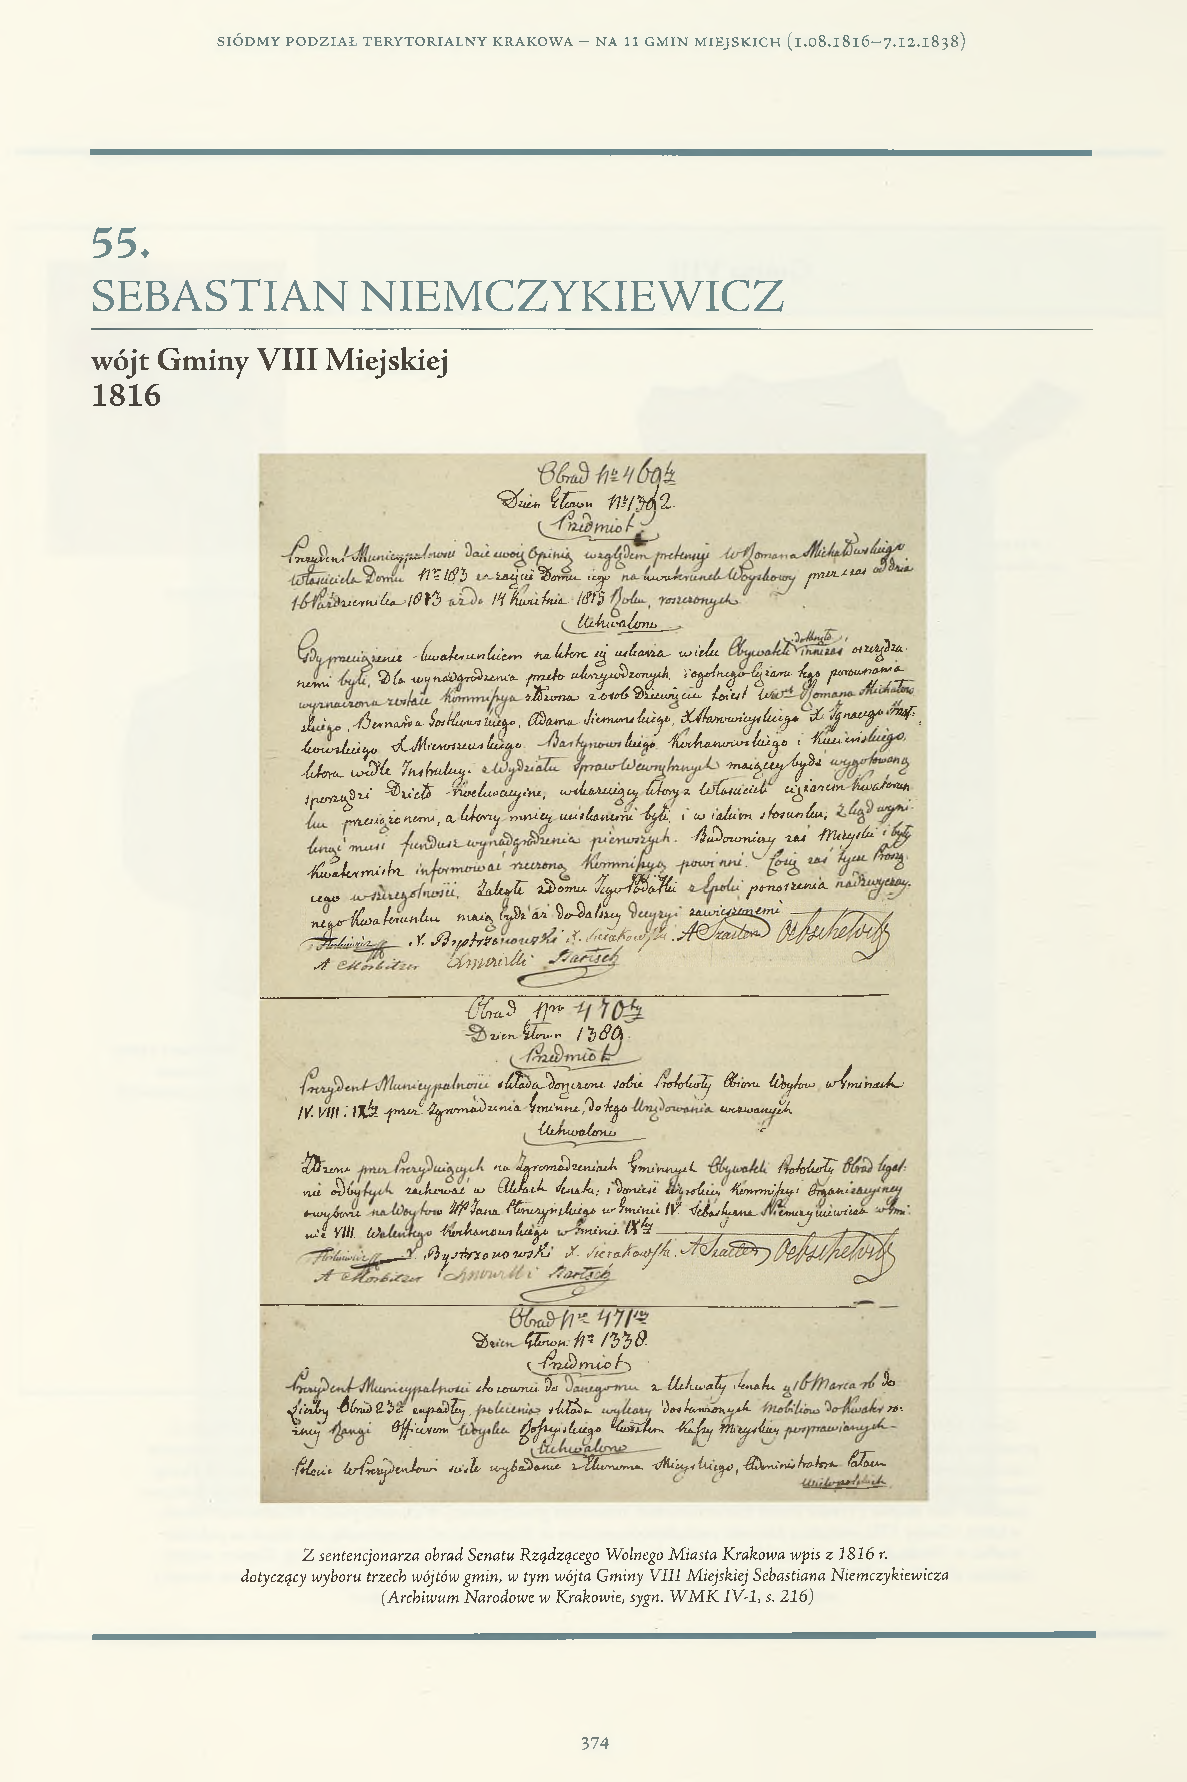 SIÓDMY PODZIAŁ TERYTORIALNY KRAKOWA – NA 11 GMIN MIEJSKICH (1.08.1816–7.12.1838)
55.
SEBASTIAN NIEMCZYKIEWICZ
wójt Gminy VIII Miejskiej
1816
Obrad
Dzien Głown
Przedmiot
Prezydent Municypalności daie swoią Opinię względem pretensyi W Romana Michałowskiego
Właściciela Domu Nro 183 za zaięcie Domu iego na kwaterunek Woyskowy przez czas od dnia
16 Października 1813 aż do 14 Kwietnia 1815 Roku, roszczonych
Uchwalono
Gdy przeciążenie kwaterunkiem na które się uskarża wielu Obywateli
nemi byli, Dla wynadgrodzenia przeto ukrzywdzonych, i ogólnego ciężaru tego porównania
wyznaczona zostaie Kommissya złożona z osob Dziewięciu to iest Romana Michałow
skiego, Bernarda Adama Siemońskiego, X Ignacego
X Mieroszewskiego Bartynowskiego, Kochanowskiego i
która wedle Instrukcyi z Wydziału Spraw Wewnętrznych maiącey bydź wygotowaną
sporządzi Dzieło wskazuiące którzy z Właścicieli ciężarem Kwaterun
ku przeciążonemi, a którzy mniey uciskanemi byli, i w iakim stosunku, Zkąd wyni
knąć musi fundusz wynadgrodzenia pierwszych. Budowniczy zaś Mieyski i były
Kwatermistrz informować rzeczoną Kommissyą powinni. Coś zaś tycze Prosz
cego w szczególności, Zaległe z Domu Jego Podatki z Epoki ponoszenia nadzwyczay
nego Kwaterunku maią bydź aż do dalszey decyzyi zawieszonemi
X. Bystrzonowski X. Sierakowski. A Szaster
A Morbitzer Bartsch
Obrad Nro 470ty
Dzien Głown 1389
Przedmiot
Prezydent Municypalności składa doręczone sobie Protokoły Obioru Wóytów w Gminach
IV. VIII. i IXtey przez Zgromadzenia Gminne, do tego Urzędowania wezwanych
Uchwalono
Złożone przez Prezyduiących na Zgromadzeniach Gminnych Obywateli Protokoły Obrad legal
nie odbytych zachować w Aktach Senatu; i donieść Wysokiey Kommissyi Organizacyiney
o wyborze na Woytów Jana w Gminie IV Sebastyana Niemczykiewicza w Gmi
nie VIII Walentego Kochanowskiego w Gminie IXtey
X. Bystrzonowski X. Sierakowski. A Szaster
A Morbitzer Bartsch
Obrad Nro 471
Dzien Głown: Nro 1338.
Przedmiot
Prezydent Municypalności stosownie do Danego mu z Uchwały Senatu 16 Marca rb do
Liczby Obrad 232 zapadłey polecenia składa wykazy dostawionych Mobiliów do Kwater ro
żney Rangi Officerom Woyska Rossyiskiego Kosztem Kassy Mieyskiey posprawianych
Uchwalono
Polecić W Prezydentowi ścisłe wybadanie z Ekonoma Mieyskiego, Administratora Pałacu
Wielopolskich
Z sentencjonarza obrad Senatu Rządzącego Wolnego Miasta Krakowa wpis z 1816 r.
dotyczący wyboru trzech wójtów gmin, w tym wójta Gminy VIII Miejskiej Sebastiana Niemczykiewicza
(Archiwum Narodowe w Krakowie, sygn. WMK IV-1, s. 216)
374